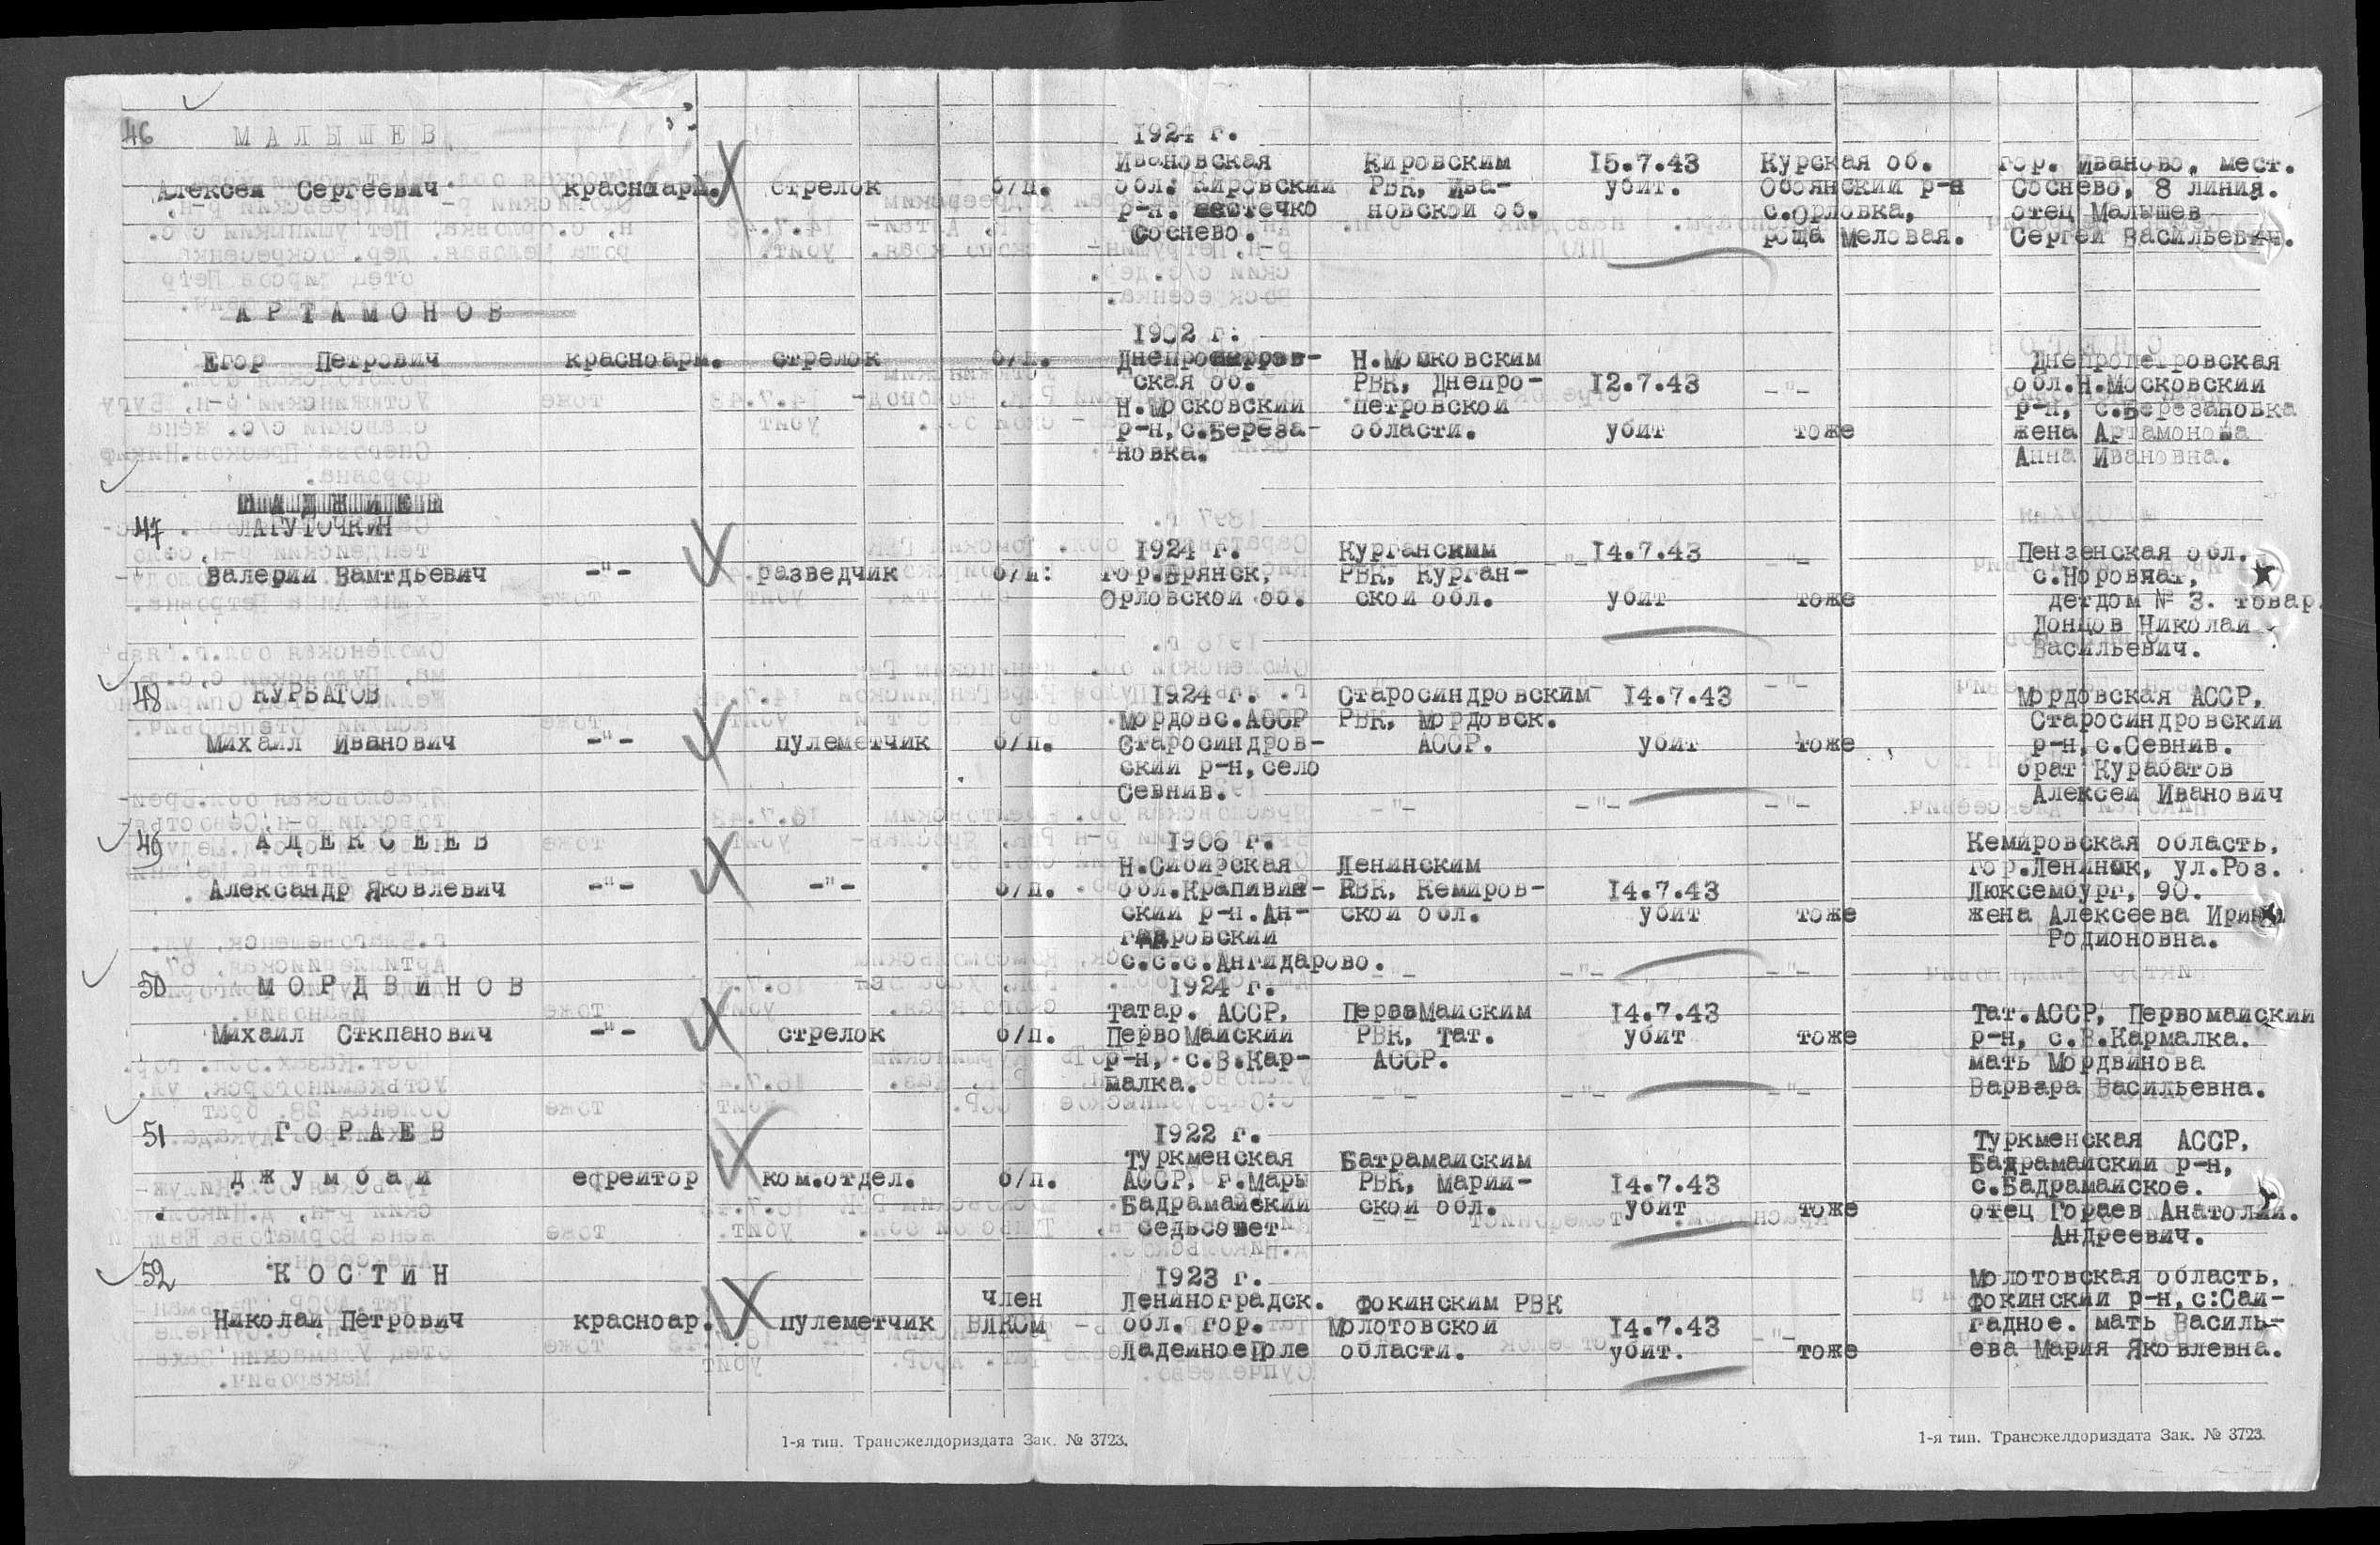 46 МАЛЫШЕВ
Алексей Сергеевич красноарм. стрелок б/п.
1924 г.
Ивановская
обл. Кировский
р-н. местечко
Соснево.
Кировским
РВК, Ива-
новской об.
15.7.43
убит.
Курская об.
Обоянский р-н
с.Орловка,
роща Меловая.
гор. Иваново, мест.
Соснево, 8 линия.
отец Малышев
Сергей Васильевич.
АРТАМОНОВ
Егор Петрович красноарм. стрелок б/п.
1902 г.
ская об.
Н.Московский
р-н,с.Береза-
новка.
Н.Мошковским
РВК, Днепро-
петровской
области.
12.7.43
убит
-"-
тоже
Днепропетровская
обл.Н.Московский
р-н, с.Березановка
жена Артамонова
Анна Ивановна.
47 ЛАГУТОЧКИН
Валерий Вамтдьевич -"- разведчик б/п:
1924 г.
гор.Брянск,
Орловской об.
Курганским
РВК, Курган-
ской обл.
-"- 14.7.43
убит
-"-
тоже
Пензенская обл.
с.Норовчат,
детдом № 3. товар.
Донцов Николай
Васильевич.
48 КУРБАТОВ
Михаил Иванович -"- пулеметчик б/п.
1924 г.
Мордовс.АССР
Старосиндров-
ский р-н,село
Севнив.
Старосиндровским
РВК, Мордовск.
АССР.
14.7.43
убит
-"-
тоже
Мордовская АССР,
Старосиндровский
р-н,с.Севнив.
брат Курабатов
Алексей Иванович
-"- -"- -"-
49 АЛЕКСЕЕВ
Александр Яковлевич -"- -"- б/п.
1906 г.
Н.Сибирская
обл.Крапивин-
ский р-н.Ан-
с.с.с.Ангидарово.
Ленинским
РВК, Кемиров-
ской обл.
14.7.43
убит
тоже
Кемировская область,
гор.Ленинск, ул.Роз.
Люксембург, 90.
жена Алексеева Ирина
Родионовна.
-"- -"- -"-
50 МОРДВИНОВ
Михаил Сткпанович -"- стрелок б/п.
1924 г.
Татар. АССР,
ПервоМайский
р-н, с.В.Кар-
малка.
ПервоМайским
РВК, Тат.
АССР.
14.7.43
убит
тоже
Тат.АССР, Первомайский
р-н, с.В.Кармалка.
мать Мордвинова
Варвара Васильевна.
-"- -"- -"-
51 ГОРАЕВ
Джумбай ефрейтор ком.отдел. б/п.
1922 г.
Туркменская
АССР, г.Мары
Бадрамайский
седьсовет
Батрамайским
РВК, Марий-
ской обл.
14.7.43
убит
тоже
Туркменская АССР,
Бадрамайский р-н,
с.Бадрамайское.
отец Гораев Анатолий.
Андреевич.
52 КОСТИН
Николай Петрович красноар. пулеметчик
член
ВЛКСМ
1923 г.
Ленинградск.
обл. гор.
ЛадейноеПоле
Фокинским РВК
Молотовской
области.
14.7.43
убит.
-"-
тоже
Молотовская область,
Фокинский р-н,с:Сай-
гадное. мать Василь-
ева Мария Яковлевна.
1-я тип. Трансжелдориздата Зак. № 3723.
1-я тип. Трансжелдориздата Зак. № 3723.